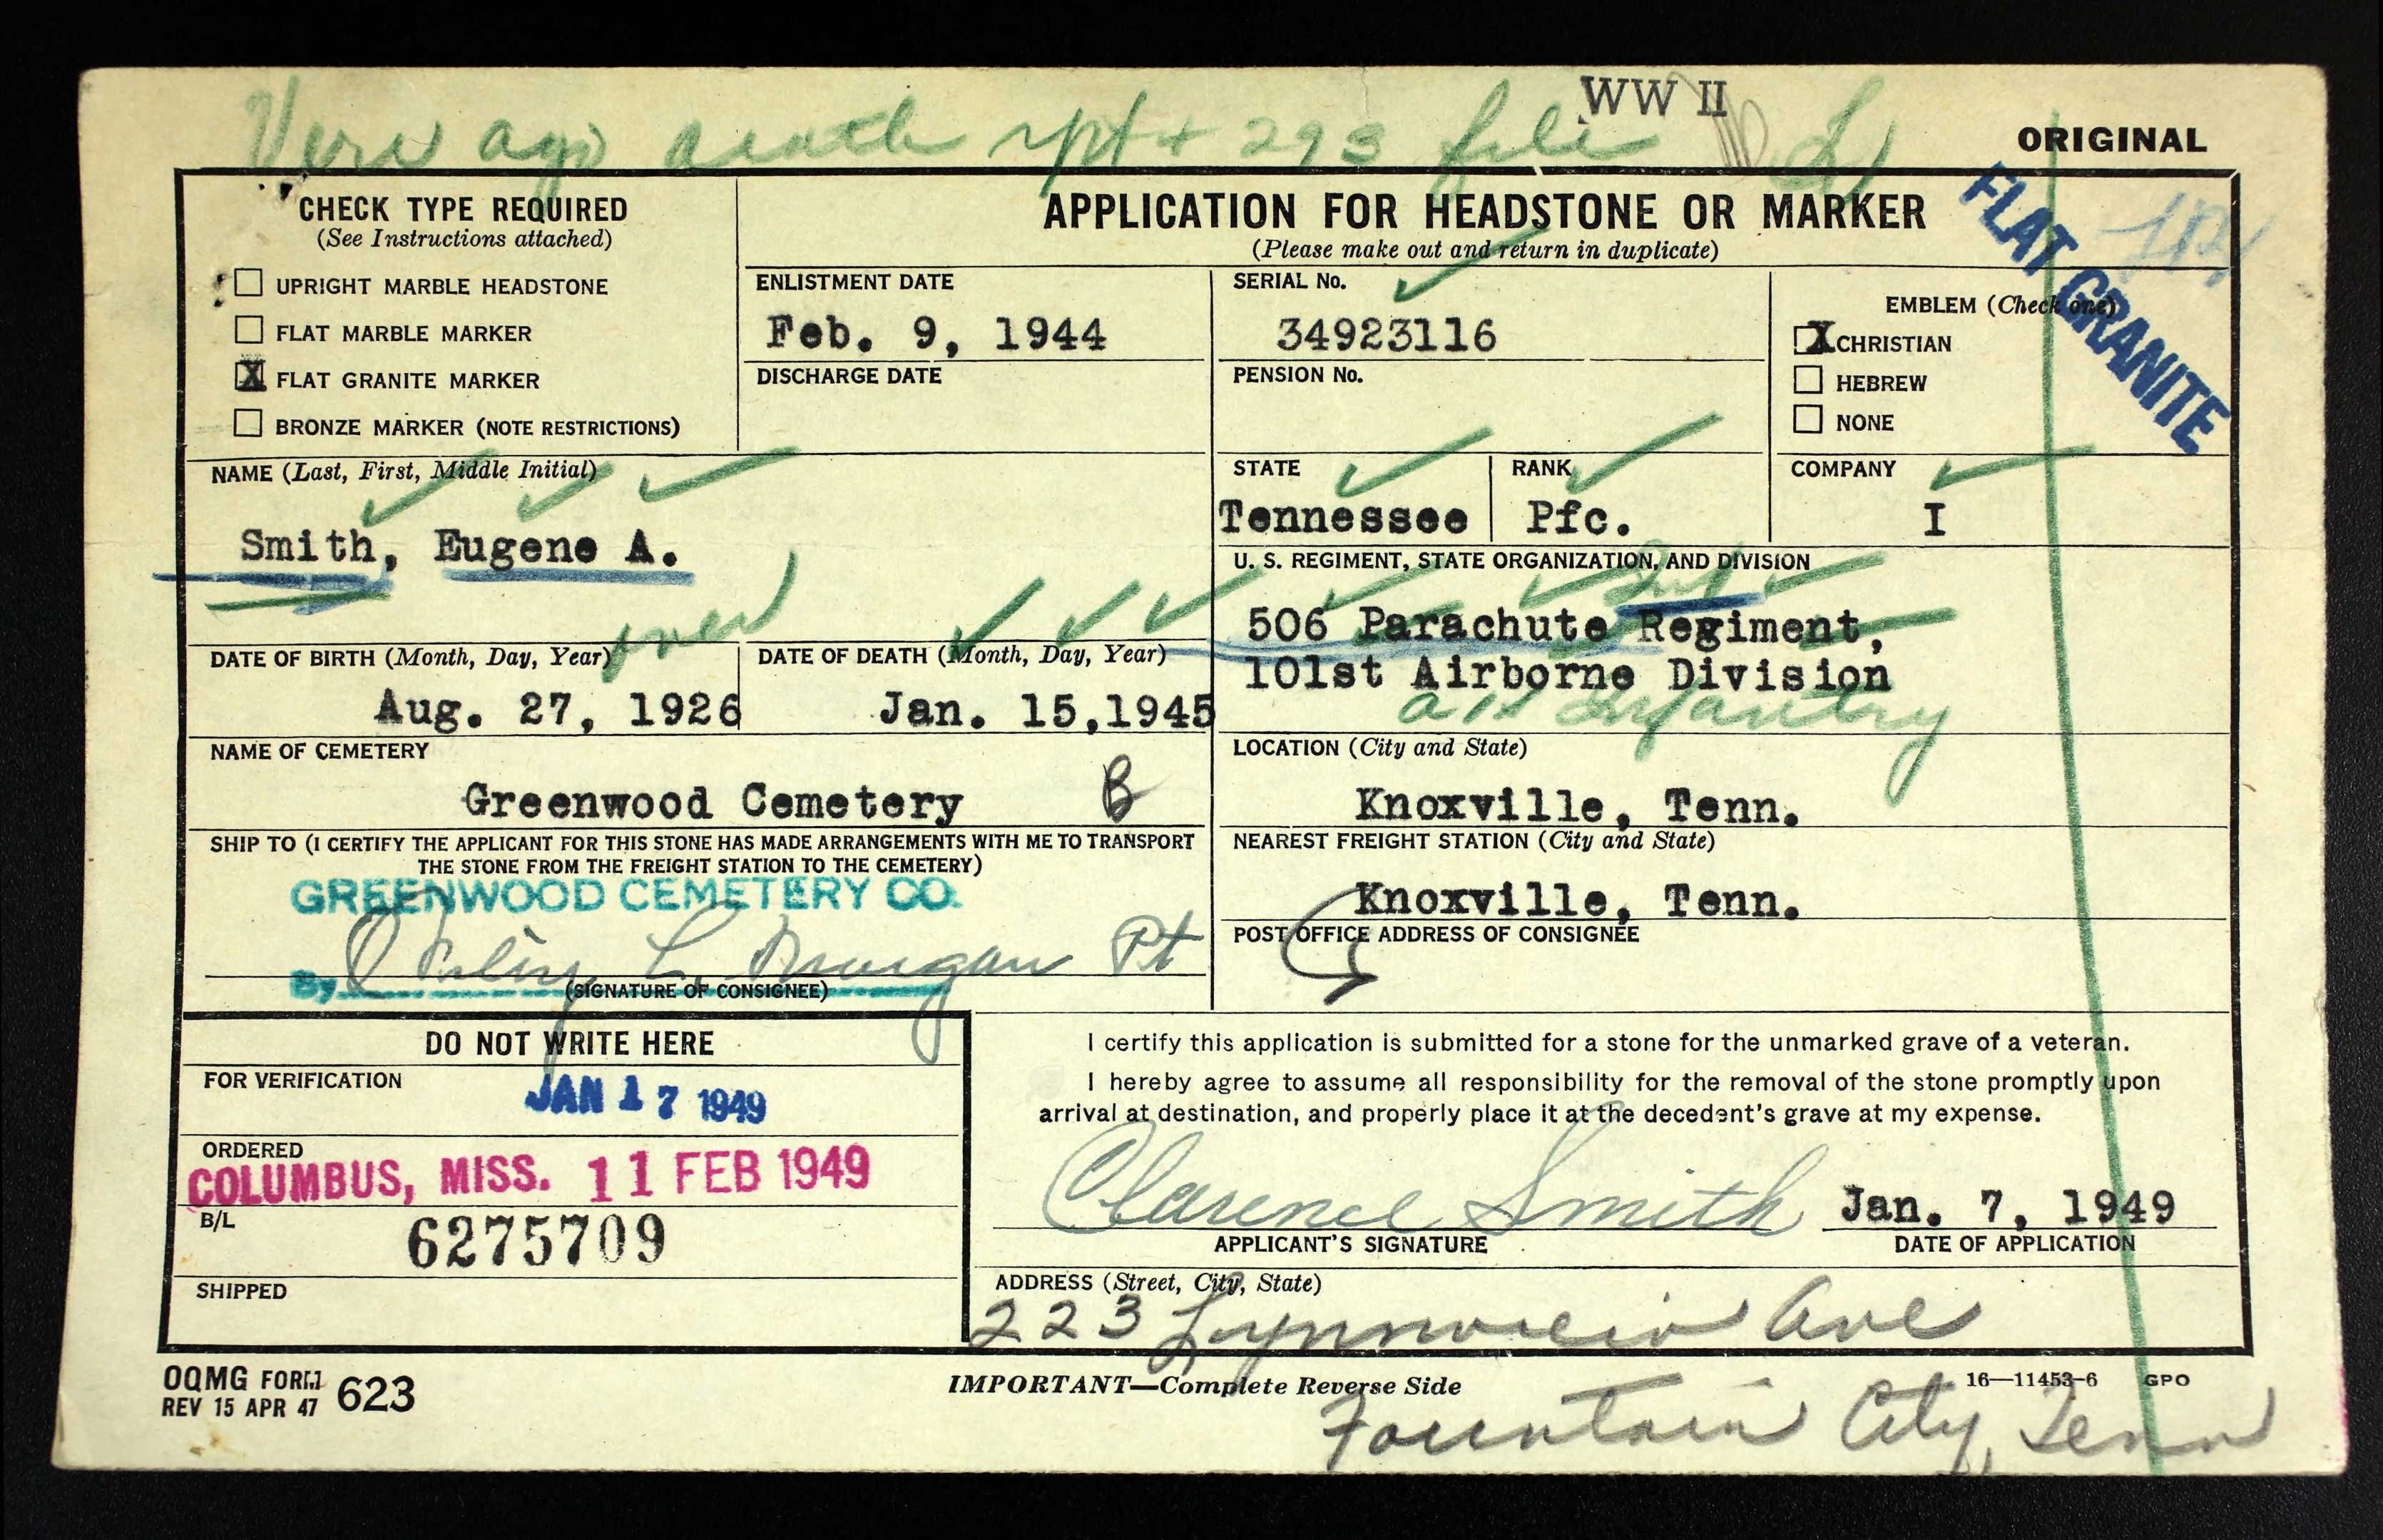 WW II
death rpt + 293 file
ORIGINAL
FLAT GRANITE
CHECK TYPE REQUIRED
(See Instructions attached)
UPRIGHT MARBLE HEADSTONE
FLAT MARBLE MARKER
X FLAT GRANITE MARKER
BRONZE MARKER (NOTE RESTRICTIONS)
APPLICATION FOR HEADSTONE OR MARKER
(Please make out and return in duplicate)
ENLISTMENT DATE
Feb. 9, 1944
DISCHARGE DATE
SERIAL No.
34923116
PENSION No.
EMBLEM (Check one)
X CHRISTIAN
HEBREW
NONE
NAME (Last, First, Middle Initial)
Smith, Eugene A.
STATE
Tennessee
RANK
Pfc.
COMPANY
I
U. S. REGIMENT, STATE ORGANIZATION, AND DIVISION
Inf
506 Parachute Regiment,
101st Airborne Division
Infantry
DATE OF BIRTH (Month, Day, Year)
Aug. 27, 1926
DATE OF DEATH (Month, Day, Year)
Jan. 15,1945
NAME OF CEMETERY
Greenwood Cemetery B
LOCATION (City and State)
Knoxville, Tenn.
SHIP TO (I CERTIFY THE APPLICANT FOR THIS STONE HAS MADE ARRANGEMENTS WITH ME TO TRANSPORT
THE STONE FROM THE FREIGHT STATION TO THE CEMETERY)
GREENWOOD CEMETERY CO.
By L. Morgan
(SIGNATURE OF CONSIGNEE)
NEAREST FREIGHT STATION (City and State)
Knoxville, Tenn.
POST OFFICE ADDRESS OF CONSIGNEE
DO NOT WRITE HERE
FOR VERIFICATION
JAN 17 1949
ORDERED
COLUMBUS, MISS. 11 FEB 1949
B/L
6275709
SHIPPED
I certify this application is submitted for a stone for the unmarked grave of a veteran.
I hereby agree to assume all responsibility for the removal of the stone promptly upon
arrival at destination, and properly place it at the decedent's grave at my expense.
Clarence Smith
Jan. 7, 1949
APPLICANT'S SIGNATURE
DATE OF APPLICATION
ADDRESS (Street, City, State)
223 Ave
Fountain City, Tenn
OQMG FORM 623
REV 15 APR 47
IMPORTANT—Complete Reverse Side
16—11453-6 GPO